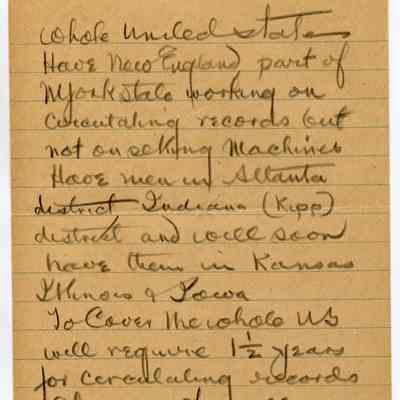 whole United states
Have New England part of
NYork state working on
circulating records but
not on selling Machines
Have men in Atlanta
district Indiana (Kipp)
district and will soon
have them in Kansas
Illinois & Iowa
To Cover the whole US
will require 1½ years
for circulating records